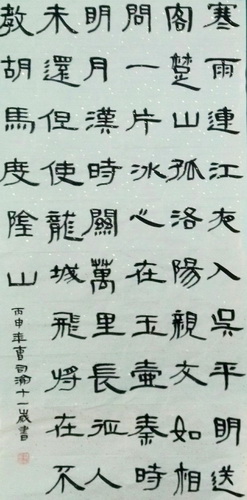 寒雨連江夜入吳平明送
客楚山孤洛陽親友如相
問一片冰心在玉壺秦時
明月漢時關萬里長征人
未還但使龍城飛將在不
教胡馬度陰山
丙申年司十一歲書